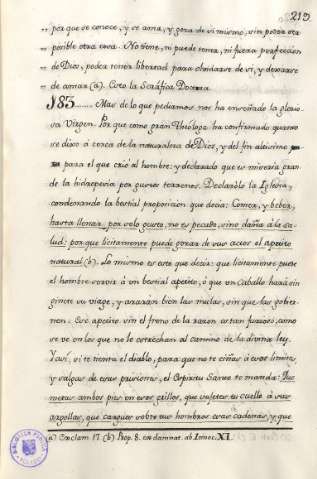 219.
„ por que se conoce, y se ama, y goza de sí mismo, sin poder ser
„ posible otra cosa. No tiene, ni puede tener, ni fuera perfeccion
„ de Dios, poder tener libertad para olvidarse de sí, y dexarse
„ de amar (a). Esto la Seráfica Doctora
§185..... Mas de lo que pediamos nos ha enseñado la glorio
sa Virgen. Por que como gran Theologa ha confirmado quanto
se dixo á cerca de la naturaleza de Dios, y del fin altisimo
para el que crió al hombre: y declarado que es miseria gran
de la hidropesia por gustos terrenos. Declarólo la Iglesia,
condenando la bestial proposicion que decia: Comer, y beber,
hasta llenar, por solo gusto, no es pecado, sino daña á la sa-
lud: porque licitamente puede gozar de sus actos el apetito
natural (b). Lo mismo es este que decia: que licitamente puede
el hombre servir á un bestial apetito, ó que un caballo hará sin
ginete su viage, y ararán bien las mulas, sin que las gobier-
nen. Ese apetito sin el freno de la razon es tan furioso, como
se ve en los que no le estrechan al camino de la divina ley.
Y así, si te tienta el diablo, para que no te ciñas á esos limites,
y salgas de esas prisiones, el Espiritu Santo te manda: Que
metas ambos pies en esos grillos, que sujetes tu cuello á sus
argollas, que cargues sobre tus hombros esas cadenas, y que
(a) Exclam. 17. (b) Prop. 8. en damnat. ab Innoc. XI.